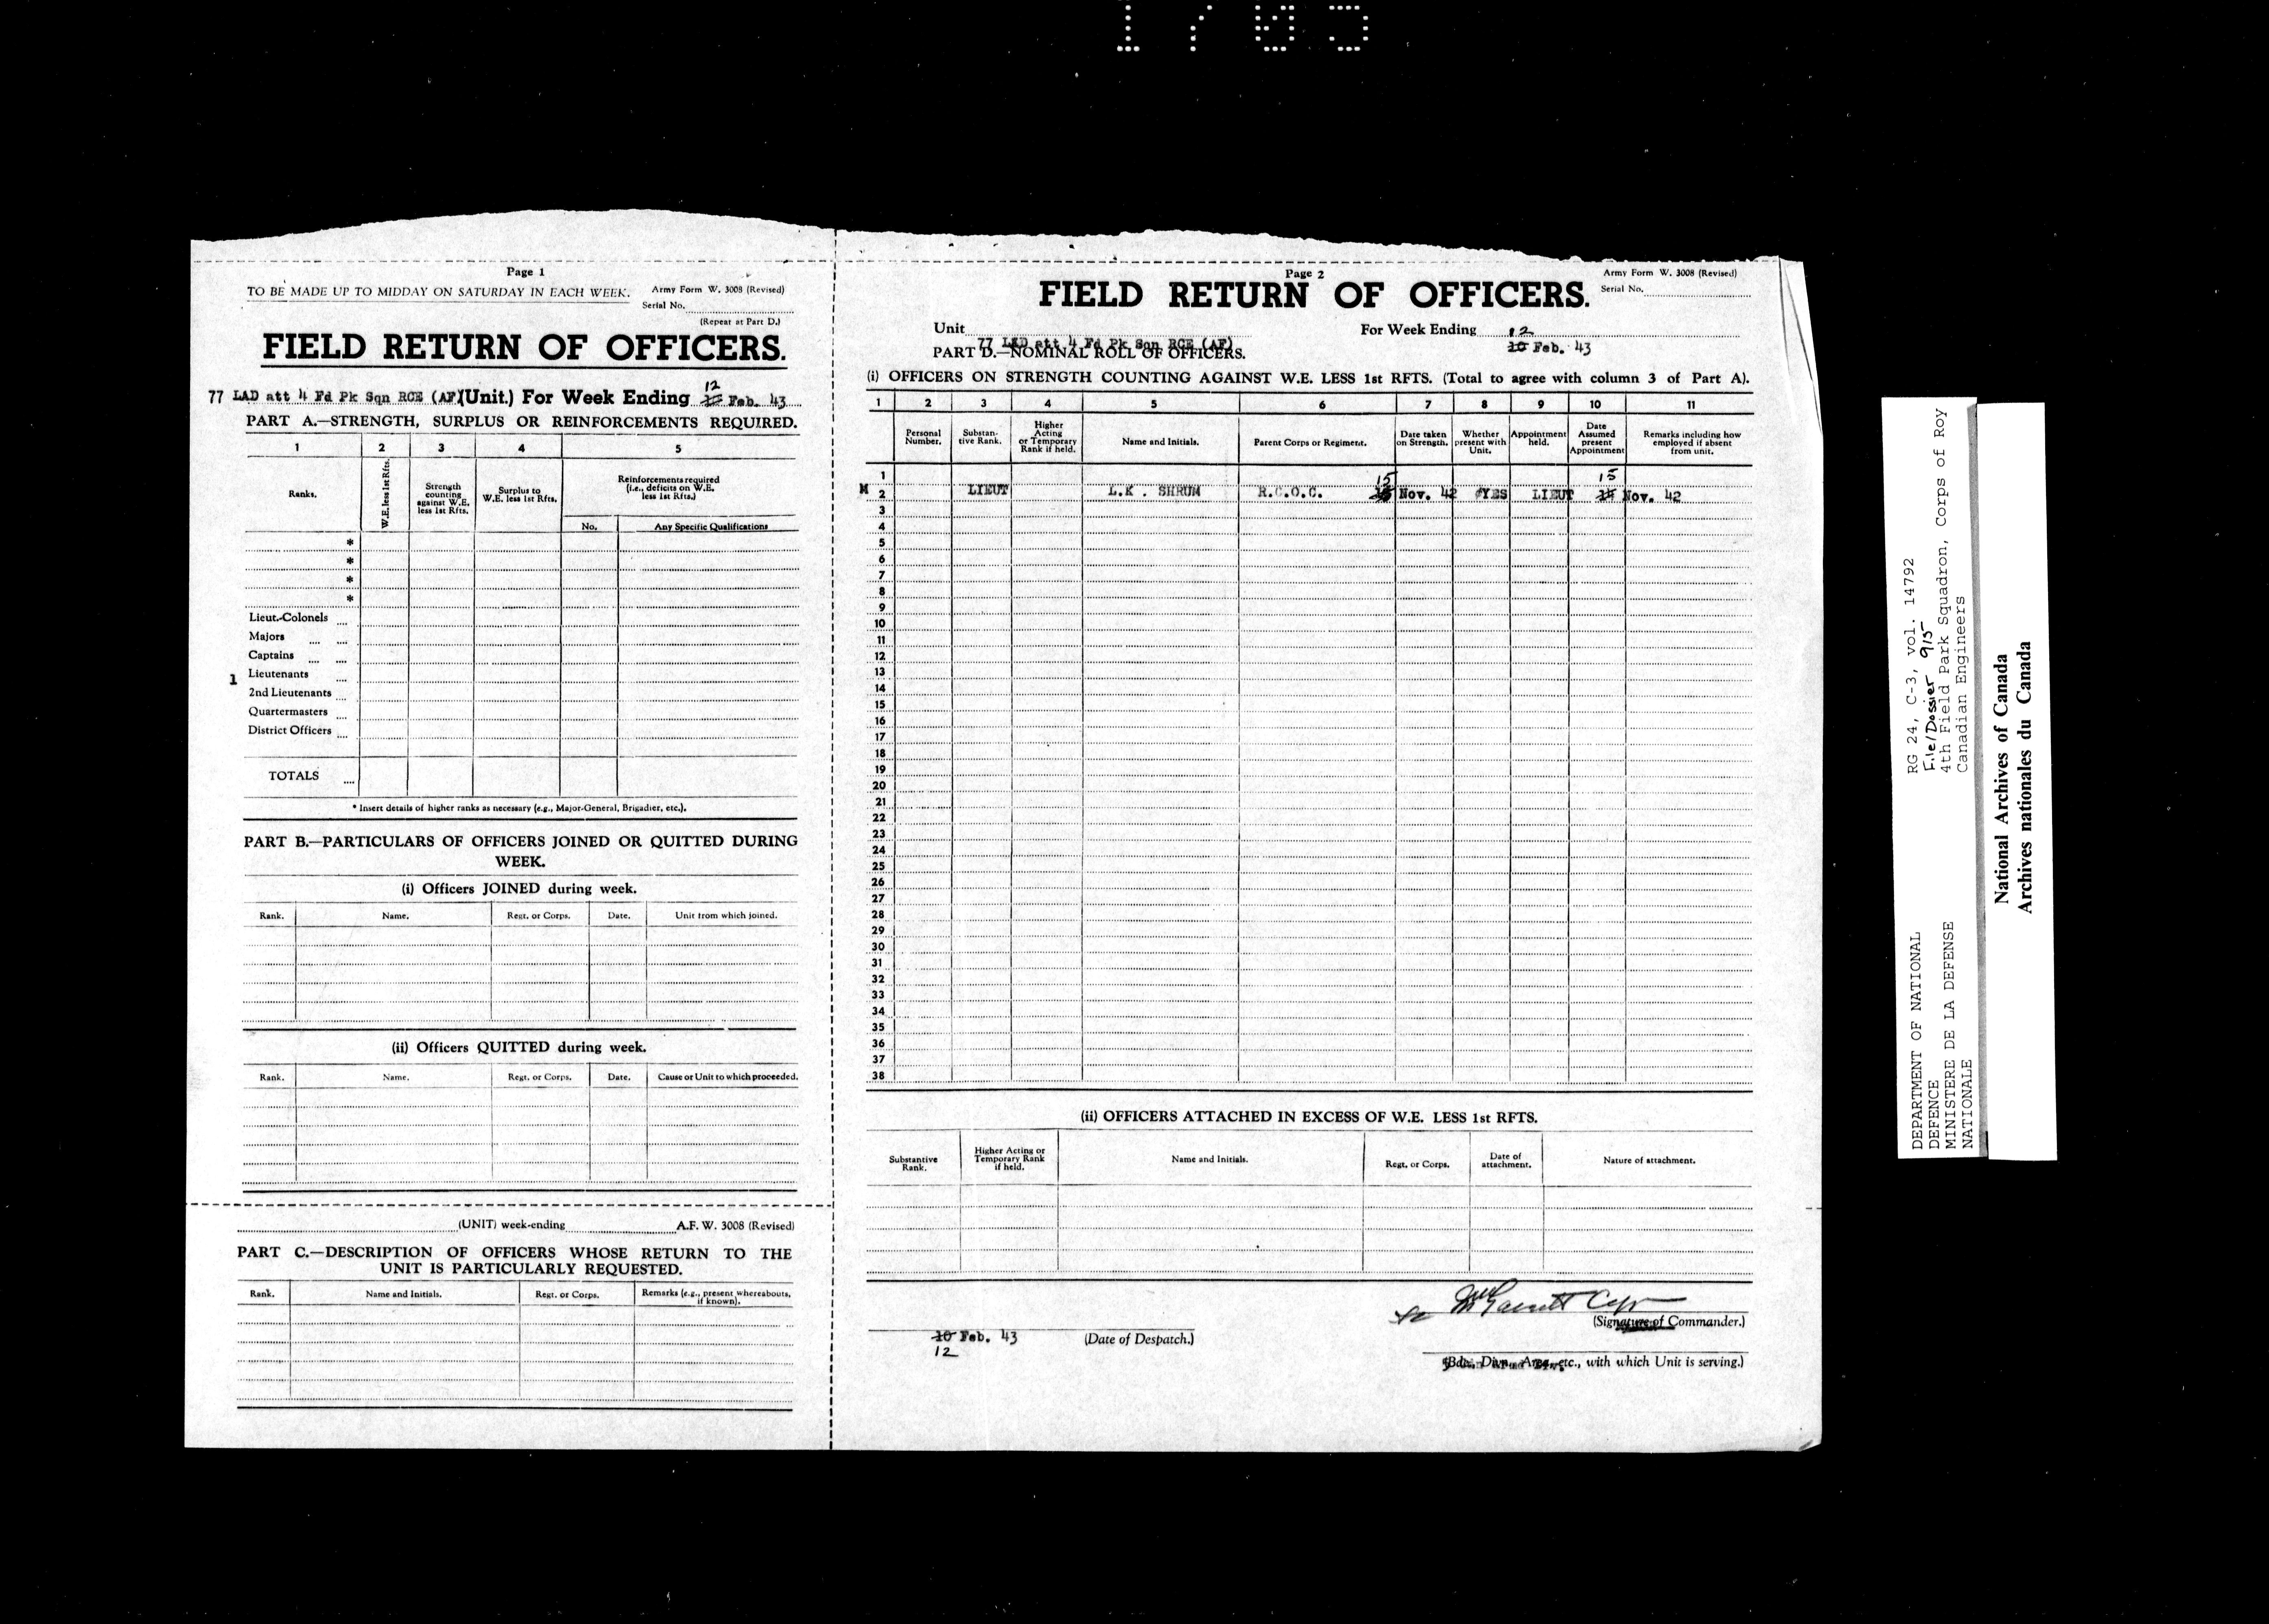 1703
Page 1
TO BE MADE UP TO MIDDAY ON SATURDAY IN EACH WEEK.
Army Form W. 3008 (Revised)
Serial No.
(Repeat at Part D.)
FIELD RETURN OF OFFICERS.
77 LAD att 4 Fd Pk Sqn RCE (AF) (Unit.) For Week Ending 12 Feb. 43
PART A.—STRENGTH, SURPLUS OR REINFORCEMENTS REQUIRED.
1 2 3 4 5
Ranks.
W.E. less 1st Rfts.
Strength counting against W.E. less 1st Rfts.
Surplus to W.E. less 1st Rfts.
Reinforcements required (i.e., deficits on W.E. less 1st Rfts.)
No.
Any Specific Qualifications
*
*
*
*
Lieut.-Colonels ....
Majors .... ....
Captains .... ....
1 Lieutenants ....
2nd Lieutenants ....
Quartermasters ....
District Officers ....
TOTALS ....
* Insert details of higher ranks as necessary (e.g., Major-General, Brigadier, etc.).
PART B.—PARTICULARS OF OFFICERS JOINED OR QUITTED DURING
WEEK.
(i) Officers JOINED during week.
Rank. Name. Regt. or Corps. Date. Unit from which joined.
(ii) Officers QUITTED during week.
Rank. Name. Regt. or Corps. Date. Cause or Unit to which proceeded.
(UNIT) week-ending A.F. W. 3008 (Revised)
PART C.—DESCRIPTION OF OFFICERS WHOSE RETURN TO THE
UNIT IS PARTICULARLY REQUESTED.
Rank. Name and Initials. Regt. or Corps. Remarks (e.g., present whereabouts, if known).
Page 2
Army Form W. 3008 (Revised)
Serial No.
FIELD RETURN OF OFFICERS.
Unit
For Week Ending 12
77 LAD att 4 Fd Pk Sqn RCE (AF)
10 Feb. 43
PART D.—NOMINAL ROLL OF OFFICERS.
(i) OFFICERS ON STRENGTH COUNTING AGAINST W.E. LESS 1st RFTS. (Total to agree with column 3 of Part A).
1 2 3 4 5 6 7 8 9 10 11
Personal Number.
Substantive Rank.
Higher Acting or Temporary Rank if held.
Name and Initials.
Parent Corps or Regiment.
Date taken on Strength.
Whether present with Unit.
Appointment held.
Date Assumed present Appointment
Remarks including how employed if absent from unit.
1 15 15
M 2 LIEUT L.K. SHRUM R.C.O.C. Nov. 42 YES LIEUT Nov. 42
3
4
5
6
7
8
9
10
11
12
13
14
15
16
17
18
19
20
21
22
23
24
25
26
27
28
29
30
31
32
33
34
35
36
37
38
(ii) OFFICERS ATTACHED IN EXCESS OF W.E. LESS 1st RFTS.
Substantive Rank.
Higher Acting or Temporary Rank if held.
Name and Initials.
Regt. or Corps.
Date of attachment.
Nature of attachment.
(Signature of Commander.)
10 Feb. 43 (Date of Despatch.)
12
(Bde., Divn., Area, etc., with which Unit is serving.)
DEPARTMENT OF NATIONAL
DEFENCE
MINISTERE DE LA DEFENSE
NATIONALE
RG 24, C-3, vol. 14792
File/Dossier 915
4th Field Park Squadron, Corps of Roy
Canadian Engineers
National Archives of Canada
Archives nationales du Canada